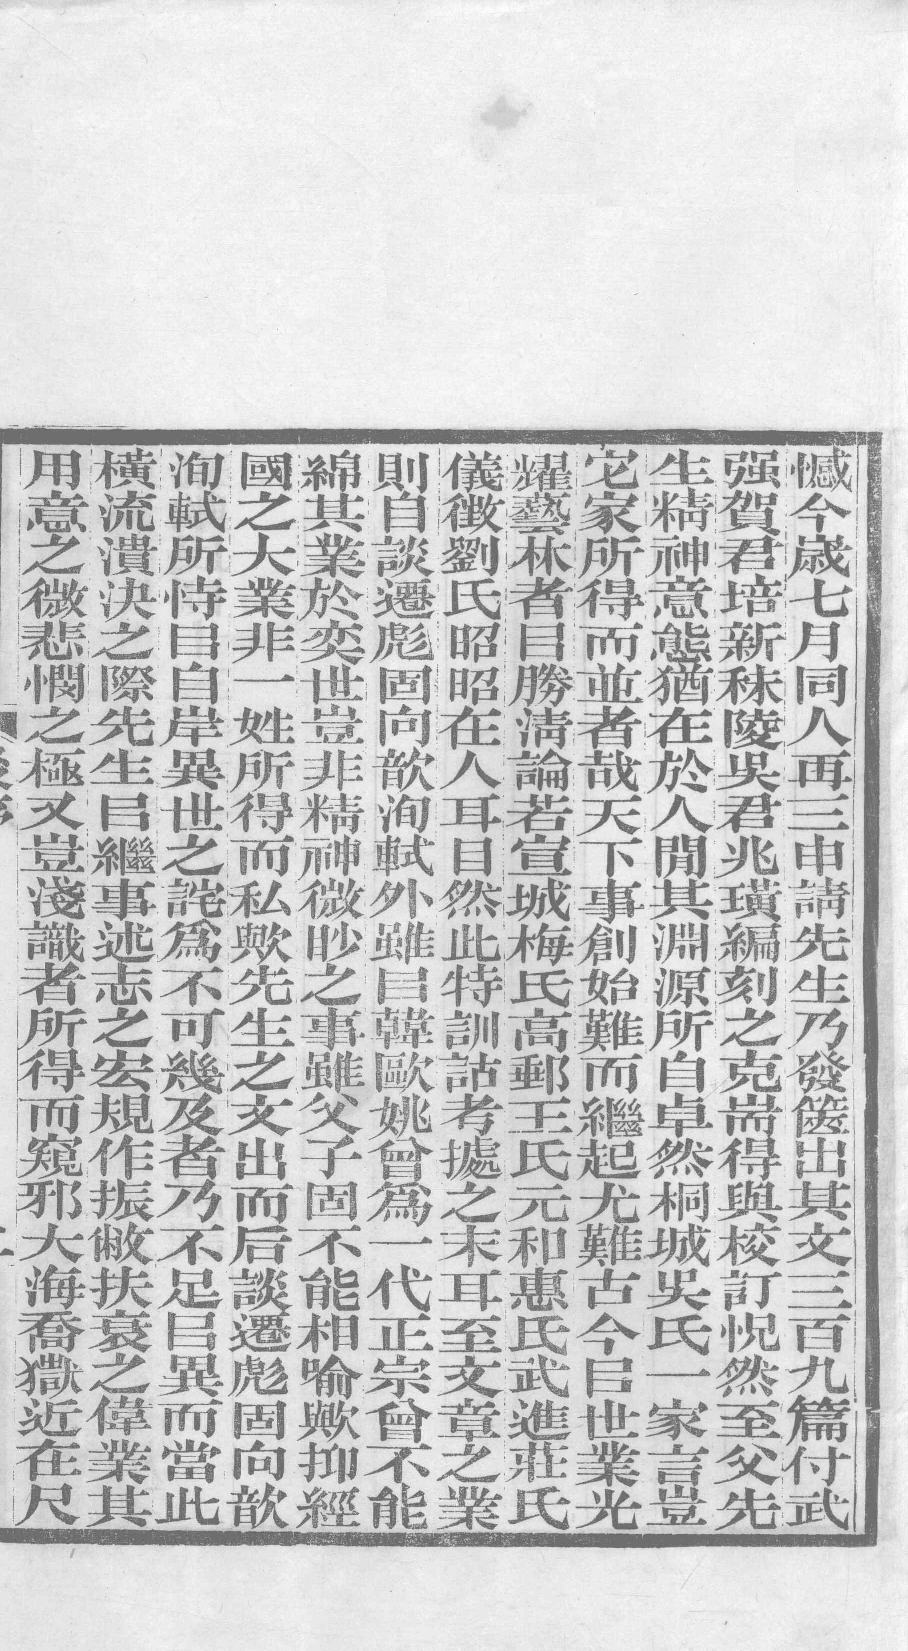 憾今歲七月同人再三申請先生乃發篋出其文三百九篇付武
强賀君培新秣陵吳君兆璜編刻之克耑得與校訂怳然至父先
生精神意態猶在於人閒其淵源所自卓然桐城吳氏一家言豈
它家所得而並者哉天下事創始難而繼起尤難古今㠯世業光
耀藝林者㠯勝淸論若宣城梅氏高郵王氏元和惠氏武進莊氏
儀徵劉氏昭昭在人耳目然此特訓詁考據之末耳至文章之業
則自談遷彪固向歆洵軾外雖㠯韓歐姚曾爲一代正宗曾不能
綿其業於奕世豈非精神微眇之事雖父子固不能相喻歟抑經
國之大業非一姓所得而私歟先生之文出而后談遷彪固向歆
洵軾所恃㠯自岸異世之詫爲不可幾及者乃不足㠯異而當此
橫流潰決之際先生㠯繼事述志之宏規作振敝扶衰之偉業其
用意之微悲憫之極又豈淺識者所得而窺邪大海喬獄近在尺